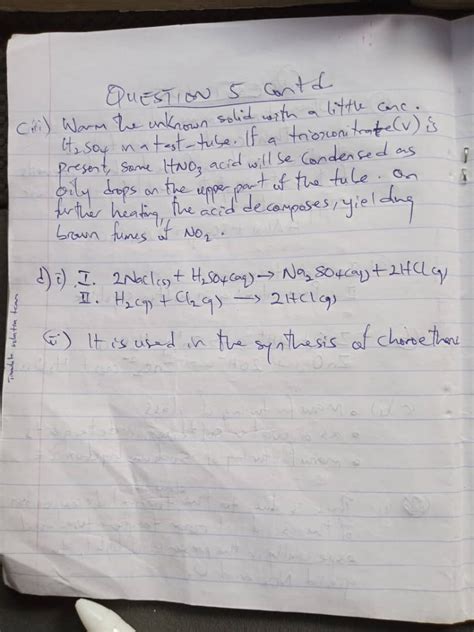 QUESTION 5 contd
ciii) Warm the unknown solid with a little conc.
H₂SO₄ in a test-tube. If a trioxonitrate(V) is
present, some HNO₃ acid will be condensed as
oily drops on the upper part of the tube. On
further heating, the acid decomposes, yielding
brown fumes of NO₂.
d) i). I. 2NaCl(s) + H₂SO₄(aq) → Na₂SO₄(aq) + 2HCl(g)
II. H₂(g) + Cl₂(g) → 2HCl(g)
(ii) It is used in the synthesis of choroethene